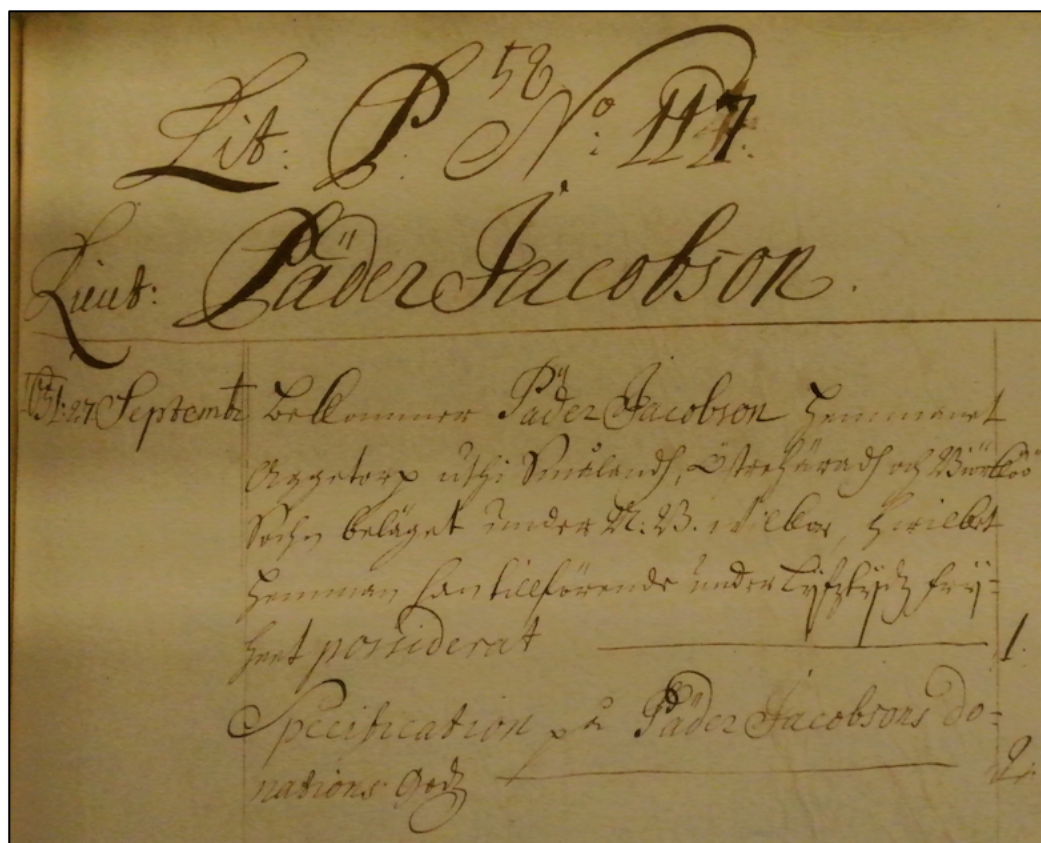 58
Lit: P. No: 117.
Lieut: Päder Jacobson.
1651: 27 Septembr Bekommer Päder Jacobson Hemmanet
Aggetorp uthi Smålandh, Östrehäradh och Biörköö
Sochn beläget under N: B. wilkor, hwilket
Hemman han tillförende under Lijfztijdz frij=
heet possiderat 1.
Specification på Päder Jacobsons do=
nations Godz 2.